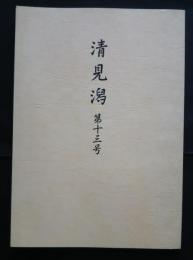 清見潟
第十三号